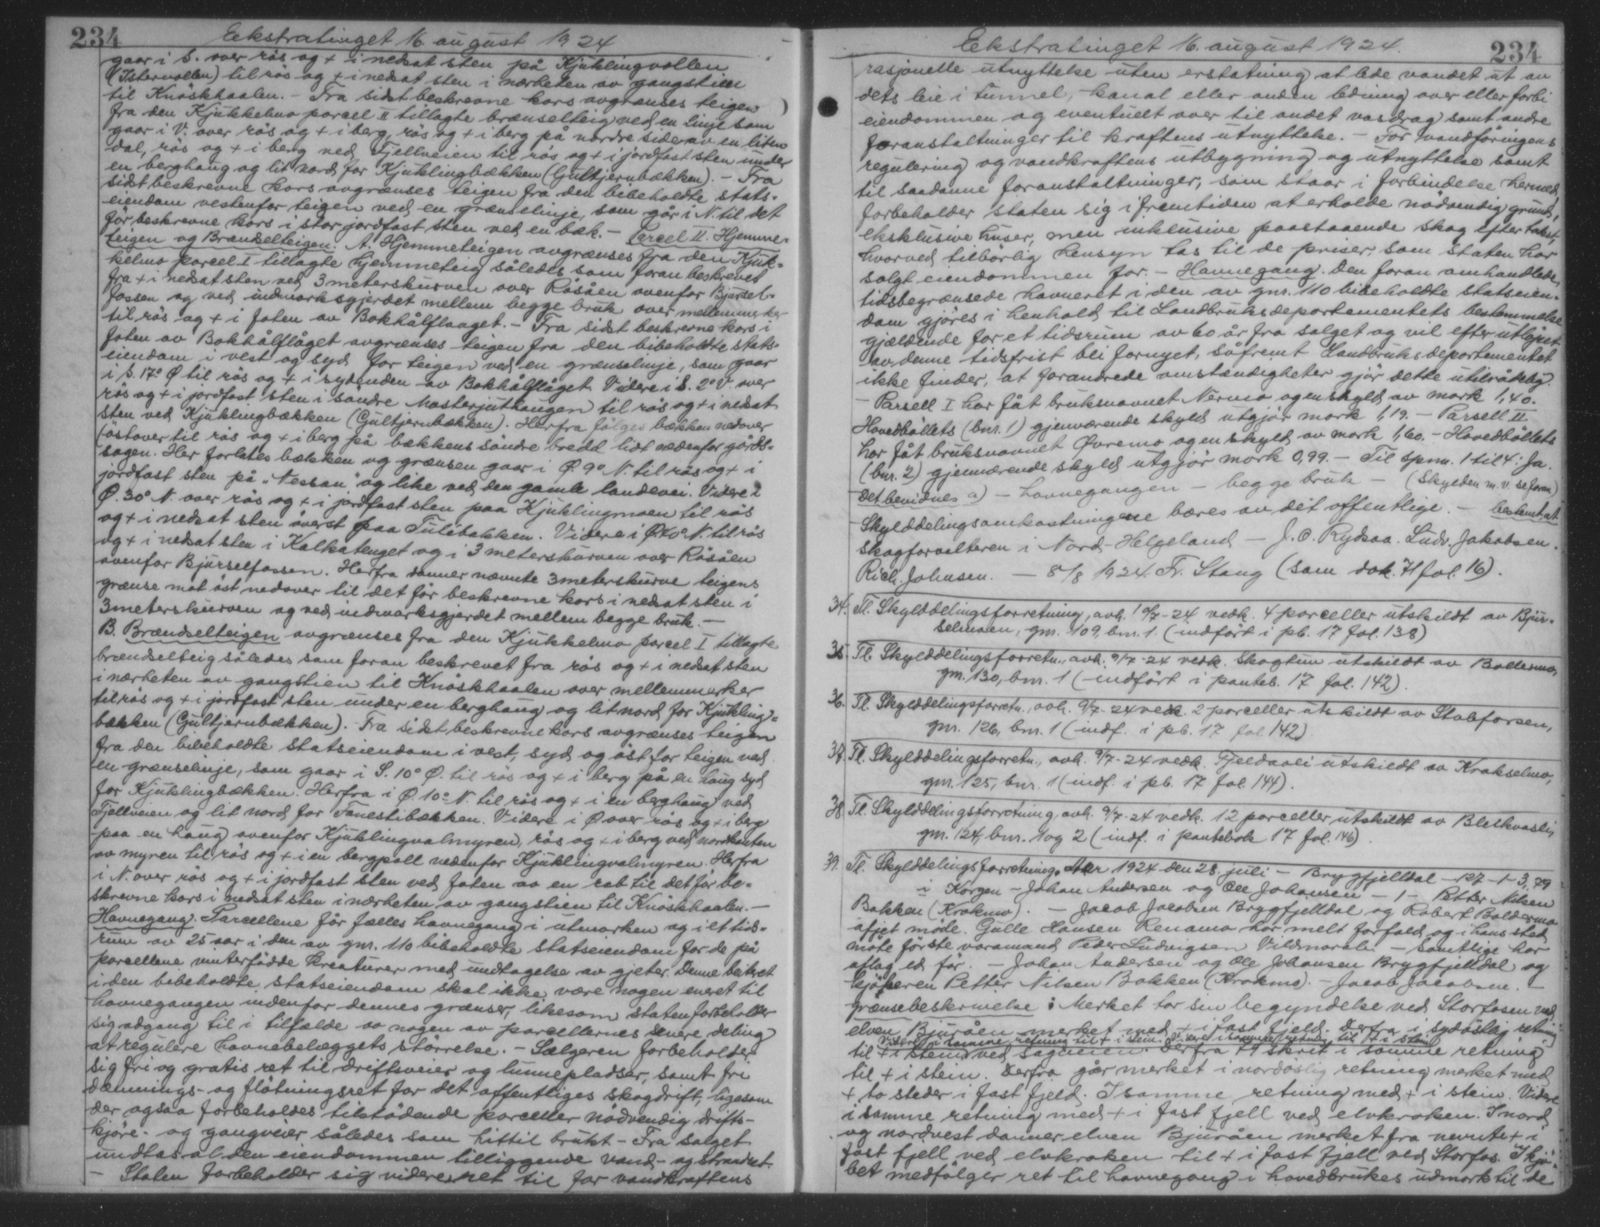 234
Ekstratinget 16 august 1924
gaar i S. over rös og + i nedsat sten på Kjuklingvollen
(Istervollen) til rös og + i nedsat sten i nærheten av gangstien
til Knöskhaalen. - Fra sidst beskrevne kors avgrænses teigen
fra den Kjukkelmo parcel II tillagte brænselteig ved en linje som
gaar i V. over rös og + i berg, rös og + i berg på nordre side av en liten
dal, rös og + i berg ved Fjellveien til rös og + i jordfast sten under
en berghang og lit nord for Kjuklingbækken (Gultjernbækken). - Fra
sidst beskrevne kors avgrænses teigen fra den bibeholdte stats-
eiendom vestenfor teigen ved en grænselinje, som går i N. til det
för beskrevne kors i stor jordfast sten ved en bæk. - Parcel II. Hjemme-
teigen og Brændselteigen. A. Hjemmeteigen avgrænses fra den Kjuk-
kelmo parcel I tillagte hjemmeteig således som foran beskrevet
fra + i nedsat sten ved 3 meterskurven over Rösåen ovenfor Bjursel-
fossen og ved indmarksgjerdet mellem begge bruk over mellemmerker
til rös og + i foten av Bokhålflaaget. - Fra sidst beskrevne kors i
foten av Bokhålflåget avgrænses teigen fra den bibeholdte stats-
eiendom i vest og syd for teigen ved en grænselinje, som gaar
i S. 17° Ø til rös og + i sydenden av Bokhålflåget. Videre i S. 2° V. over
rös og + i jordfast sten i söndre Masterjuthaugen til rös og + i nedsat
sten ved Kjuklingbækken (Gultjernbækken). Herfra følges bækken nedover
(östover til rös og + i berg på bækkens söndre bredd lidt nedenfor gårds-
sagen. Her forlates bækken og grænsen gaar i Ø. 9° N. til rös og + i
jordfast sten på "Nessan" og like ved den gamle landevei. Videre i
Ø. 30° N. over rös og + i jordfast sten paa Kjuklingmoen til rös
og + i nedsat sten överst paa Tulibakken. Videre i Ø. 40° N. til rös
og + i nedsat sten i Kalkatenget og i 3 meterskurven over Rösåen
ovenfor Bjurselfossen. Herfra danner nævnte 3 meterskurve teigens
grænse mot öst nedover til det för beskrevne kors i nedsat sten i
3 meterskurven og ved indmarksgjerdet mellem begge bruk. -
B. Brændselteigen avgrænses fra den Kjukkelmo parcel I tillagte
brændselteig således som foran beskrevet fra rös og + i nedsat sten
i nærheten av gangstien til Knöskhaalen over mellemmerker
til rös og + i jordfast sten under en berghang og lit nord for Kjukling-
bækken (Gultjernbækken). Fra sidst beskrevne kors avgrænses teigen
fra den bibeholdte statseiendom i vest, syd og öst for teigen ved
en grænselinje, som gaar i S. 10° Ø. til rös og + i berg på en haug syd
for Kjuklingbækken. Herfra i Ø. 10° N. til rös og + i en berghang ved
Fjellveien og lit nord for Fanestibækken. Videre i Ø over rös og + i berg
paa en haug ovenfor Kjuklingvalmyren, rös og + i berg ved nordkanten
av myren til rös og + i en bergpall nedenfor Kjuklingvalmyren. Herfra
i N. over rös og + i jordfast sten ved foten av en rab til det för be-
skrevne kors i nedsat sten i nærheten av gangstien til Knöskhaalen. -
Havnegang. Parcellene får fælles havnegang i utmarken og i et tids-
rum av 25 aar i den av gnr. 110 bibeholdte statseiendom for de på
parcellene vinterfödde kreaturer med undtagelse av gjeter. Denne beitret
i den bibeholdte statseiendom skal ikke være nogen eneret til
havnegangen indenfor dennes grænser, likesom staten forbeholder
sig adgang til i tilfælde av nogen av parcellernes senere deling
at regulere havnebelæggets störrelse. - Sælgeren forbeholder
sig fri og gratis ret til driftsveier og lunnepladser, samt fri
dæmnings- og flötningsret for det offentliges skogdrift, ligesom
der ogsaa forbeholdes tilstödende parceller nödvendig drifts-
kjöre- og gangveier således som hittil brukt - Fra salget
undtas al den eiendommen tilliggende vand- og strandret.
- Staten forbeholder sig videre ret til for vandkraftens
Ekstratinget 16. august 1924.
234
rasjonelle utnyttelse uten erstatning at lede vandet ut av
dets leie i tunnel, kanal eller anden ledning over eller forbi
eiendommen og eventuelt over til andet vasdrag samt andre
foranstaltninger til kraftens utnyttelse. - For vandföringens
regulering og vandkraftens utbygning og utnyttelse samt
til saadanne foranstaltninger, som staar i forbindelse hermed,
forbeholder staten sig i fremtiden at erholde nödvendig grund,
eksklusive huser, men inklusive paastaaende skog efter takst,
hvorved tilbörlig hensyn tas til de priser, som staten har
solgt eiendommen for. - Havnegang. Den foran omhandlede,
tidsbegrænsede havneret i den av gnr. 110 bibeholdte statseien-
dom gjöres i henhold til Landbruksdepartementets bestemmelse
gjældende for et tidsrum av 60 år fra salget og vil efter utlöpet
av denne tidsfrist bli fornyet, såfremt Landbruksdepartementet
ikke finder, at forandrede omstændigheter gjör dette utilrådelig.
- Parsell I har fåt bruksnavnet Nermo og en skyld av mark 1,40.
Hovedböllets (bnr. 1) gjenværende skyld utgjör mark 1,19. - Parsell II
har fåt bruksnavnet Övremo og en skyld av mark 1,60. - Hovedböllets
(bnr. 2) gjenværende skyld utgjör mark 0,99. - Til spm. 1 til 4: Ja.
Det bevidnes a) - havnegangen - begge bruk - (Skylden m.v. se foran)
- Skylddelingsomkostningene bæres av det offentlige. - bestemt at
Skogforvalteren i Nord-Helgeland - J. O. Rydsaa. Ludv. Jakobsen.
Rich. Johnsen. - 8/8 1924. Fr. Stang (sam dok. 71 fol. 16).
34. Tl. Skylddelingsforretning, avh. 10/7-24 vedk. 4 parceller utskildt av Bjur-
selmoen, gnr. 109, bnr. 1 (indfört i pb. 17 fol. 138)
35. Tl. Skylddelingsforretn., avh. 9/7-24 vedk. Skogtun utskildt av Boldermo,
gnr. 130, bnr. 1 (indfört i panteb. 17 fol. 142).
36. Tl. Skylddelingsforretn., avh. 9/7-24 vedk. 2 parceller utskildt av Stabforsen,
gnr. 126, bnr. 1 (indf. i pb. 17 fol. 142)
37. Tl. Skylddelingsforretn., avh. 9/7-24 vedk. Fjeldavli utskildt av Krokselmo,
gnr. 125, bnr. 1 (indf. i pb. 17 fol. 144).
38. Tl. Skylddelingsforretning, avh. 9/7-24 vedk. 12 parceller utskildt av Bletkvasli,
gnr. 124, bnr. 1 og 2 (indf. i pantebok 17 fol. 146).
39. Tl. Skylddelingsforretning. Aar 1924 den 28. juli - Brygfjelldal - 127 - 1 - 3,79
i Korgen - Johan Andersen og Ole Johansen - 1 - Petter Nilsen
Bakken (Krokmo). - Jacob Jacobsen Brygfjelldal og Robert Boldermo
afgjet möte. Gulle Hansen Renamo har melt forfald, og i hans sted
möte förste varamand Peder Ludvigsen Vildmoralie - Samtlige har
aflag ed för. - Johan Andersen og Ole Johansen Brygfjelldal og
kjöberen Petter Nilsen Bakken (Krokmo). - Jacob Jacobsen. -
grænsebeskrivelse: Merket tar sin begyndelse ved Storfosen ved
elven Bjuråen merket med + i fast fjeld. Derfra i sydöstlig retning
Videre i samme retning til + i sten. Videre i samme retning til + i sten
til + i sten ved sagveien. Derfra 79 skrit i samme retning
til + i stein. Derfra går merket i nordöslig retning merket med
+ to steder i fast fjeld. I samme retning med + i stein. Videre
i samme retning med + i fast fjell ved elvkroken. I nord
og nordvest danner elven Bjuråen merket fra nevnte + i
fast fjell ved elvkroken til + i fast fjell ved Storfos. I kjö-
bet medfölger ret til havnegang i hovedbrukes udmark til de